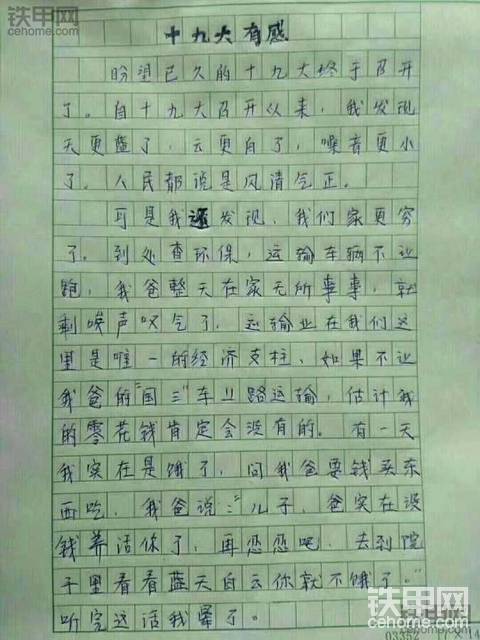 铁甲网
cehome.com
十九大有感
盼望已久的十九大终于召开
了。自十九大召开以来，我发现
天更蓝了，云更白了，噪音更小
了。人民都说是风清气正。
可是我还发现，我们家更穷
了。到处查环保，运输车辆不让
跑，我爸整天在家无所事事，就
剩唉声叹气了，运输业在我们这
里是唯一的经济支柱，如果不让
我爸的“国三”车上路运输，估计我
的零花钱肯定会没有的。有一天
我实在是饿了，问我爸要钱买东
西吃，我爸说：“儿子，爸实在没
钱养活你了，再忍忍吧，去到院
子里看看蓝天白云你就不饿了。”
听完这话我晕了。
铁甲网
cehome.com